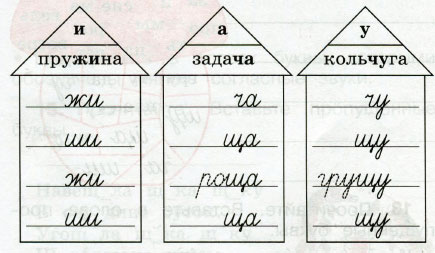 и а у
пружина задача кольчуга
жи ча чу
ши ща щу
жи роща грущу
ши ща щу